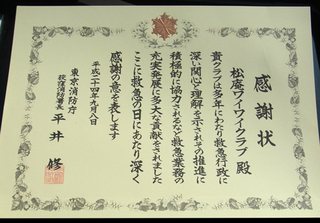 感謝状
松庵ワイワイクラブ 殿
貴クラブは多年にわたり救急行政に
深い関心と理解を示されその推進に
積極的に協力されるなど救急業務の
充実発展に多大な貢献をされました
ここに救急の日にあたり深く
感謝の意を表します
平成二十四年九月八日
東京消防庁
荻窪消防署長 平井 修